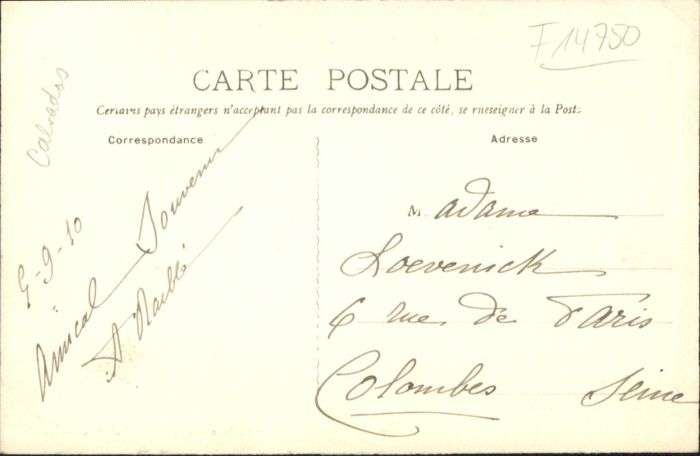 F 14750
CARTE POSTALE
Certains pays étrangers n'acceptant pas la correspondance de ce côté, se rneseigner à la Poste
Correspondance
Adresse
Calvados
5-9-10
Amical Souvenir
Madame
Loevenick
6 rue de Paris
Colombes Seine